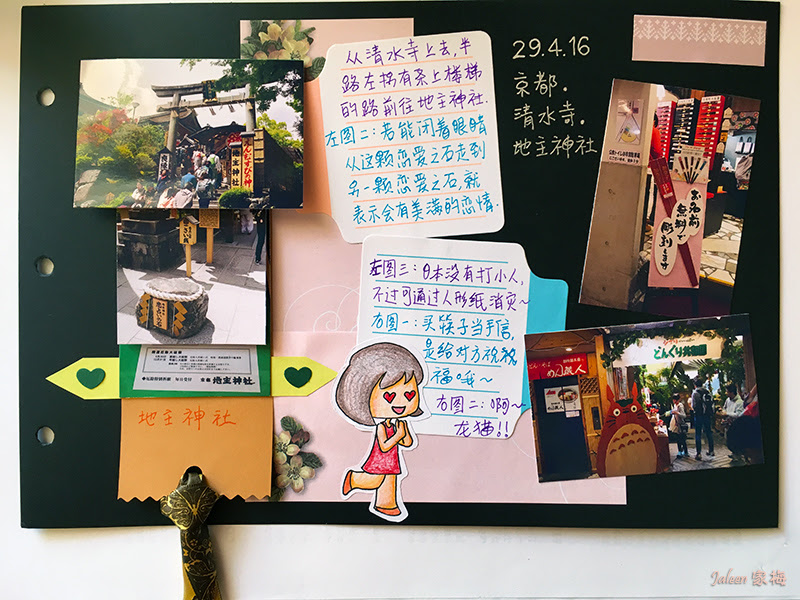 从清水寺上去,半
路左拐有条上楼梯
的路前往地主神社.
左图二:若能闭着眼睛
从这颗恋爱之石走到
另一颗恋爱之石,就
表示会有美满的恋情.
29.4.16
京都.
清水寺.
地主神社
左图三:日本没有打小人,
不过可通过人形纸消灾~
右图一:买筷子当手信,
是给对方祝祝
福哦~
右图二:啊~
龙猫!!
えんむすびの神
地主神社
京都 地主神社
地主神社
お名前
無料で
彫刻します
どんぐり共和国
めん職人
Jaleen 家梅